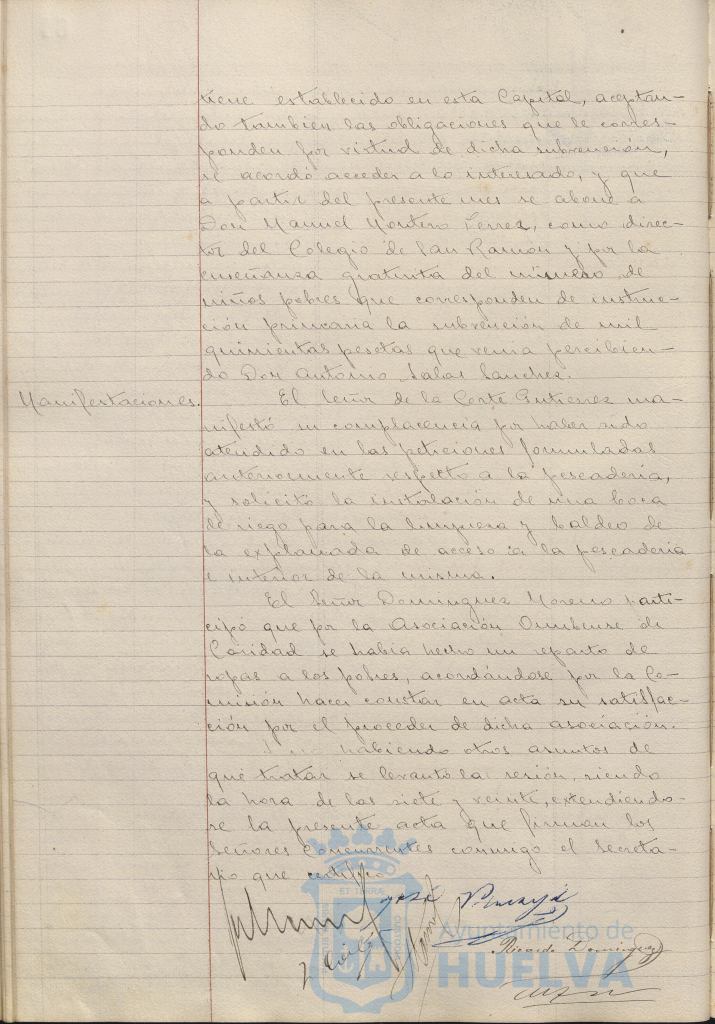 tiene establecido en esta Capital, aceptan-
do tambien las obligaciones que le corres-
ponden por virtud de dicha subvención,
se acordó acceder a lo interesado, y que
a partir del presente mes se abone a
Don Manuel Montero Ferrez, como direc-
tor del Colegio de San Ramon y por la
enseñanza gratuita del número de
niños pobres que corresponden de instruc-
ción primaria la subvención de mil
quinientas pesetas que venia percibien-
do Don Antonio Salas Sanchez.
Manifestaciones. El Señor de la Corte Gutierrez ma-
nifestó su complacencia por haber sido
atendido en las peticiones formuladas
anteriormente respecto a la pescadería,
y solicitó la instalación de una boca
de riego para la limpieza y baldeo de
la explanada de acceso a la pescaderia
e interior de la misma.
El Señor Dominguez Moreno parti-
cipó que por la Asociación Onubense de
Caridad se habia hecho un reparto de
ropas a los pobres, acordándose por la Co-
misión hacer constar en acta su satisfac-
ción por el proceder de dicha asociación.
Y no habiendo otros asuntos de
que tratar se levantó la sesión, siendo
la hora de las siete y veinte, extendiendo-
se la presente acta que firman los
Señores Concurrentes conmigo el Secreta-
rio que certifico.
José
Ricardo Dominguez
Ayuntamiento de
HUELVA